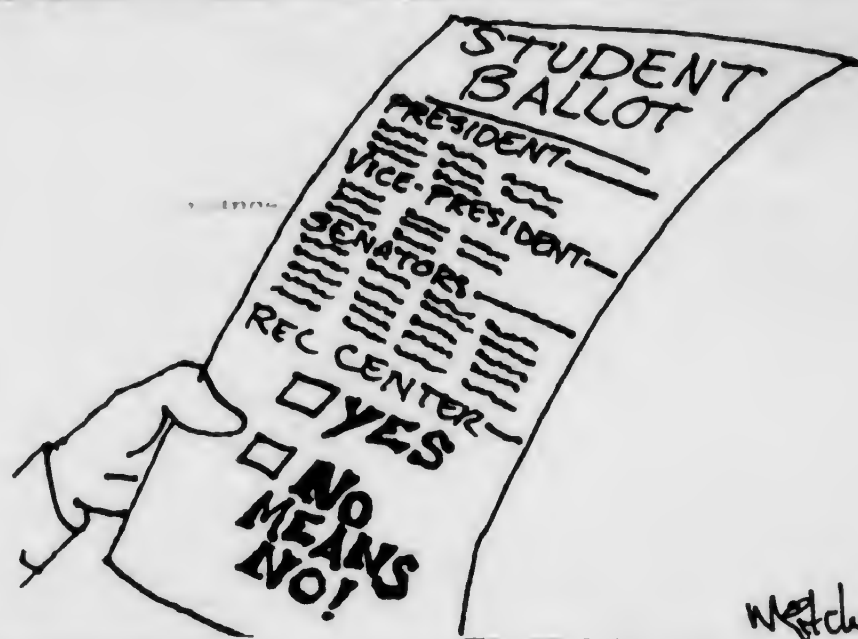 STUDENT
BALLOT
PRESIDENT
VICE-PRESIDENT
SENATORS
REC CENTER
YES
NO
MEANS
NO!